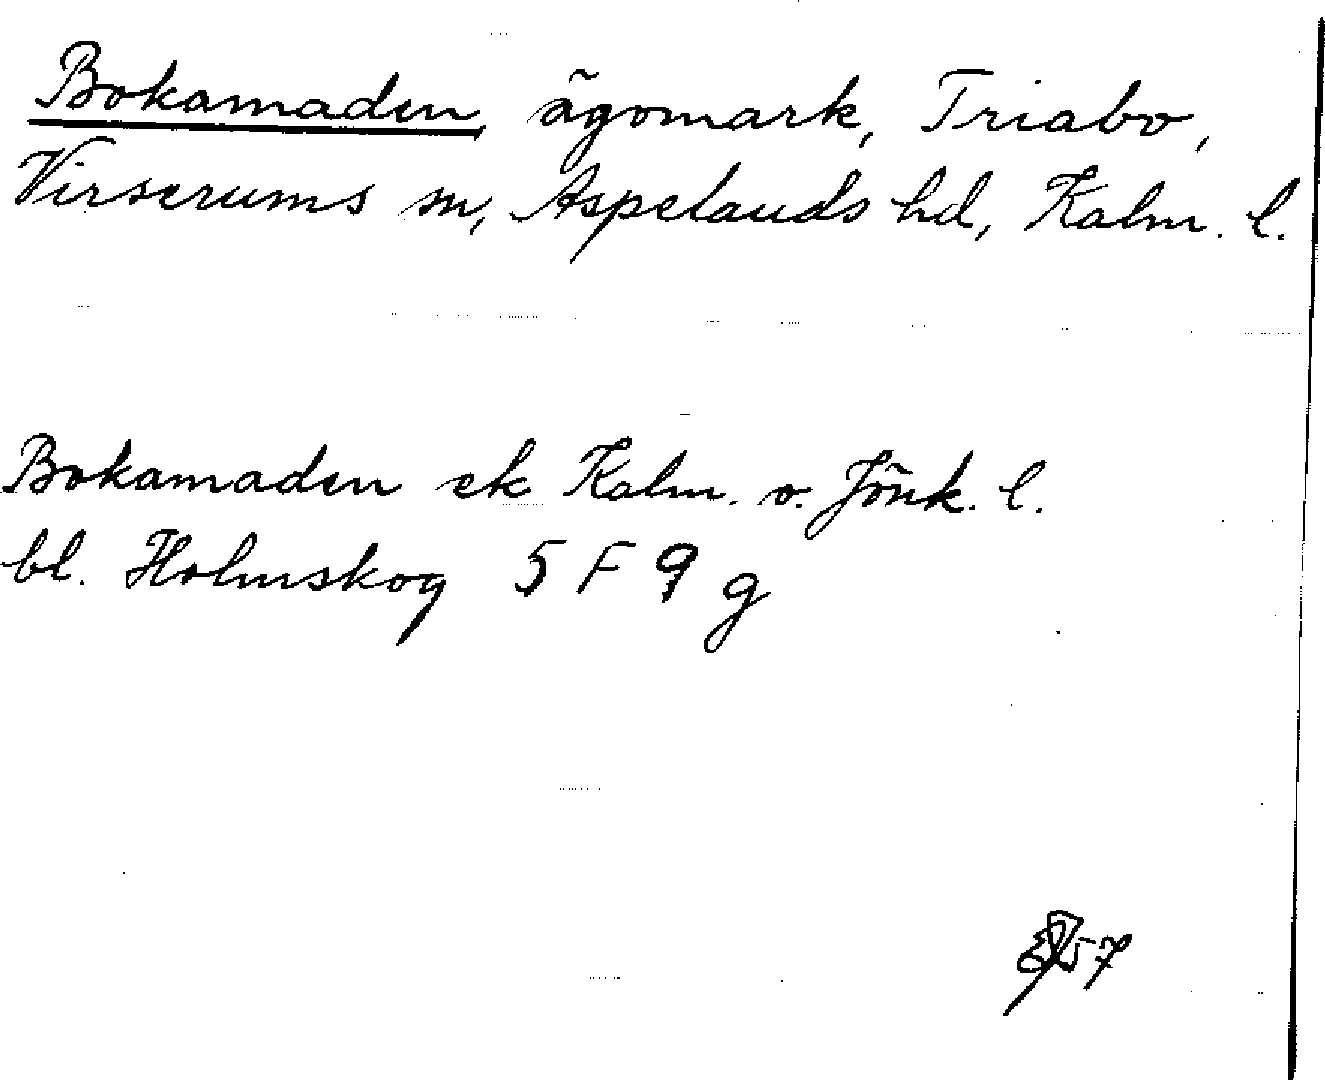 Bokamaden, ägomark, Triabo,
Virserums sn, Aspelands hd, Kalm. l.
Bokamaden ek Kalm. o. Jönk. l.
bl. Holmskog 5 F 9 g
57